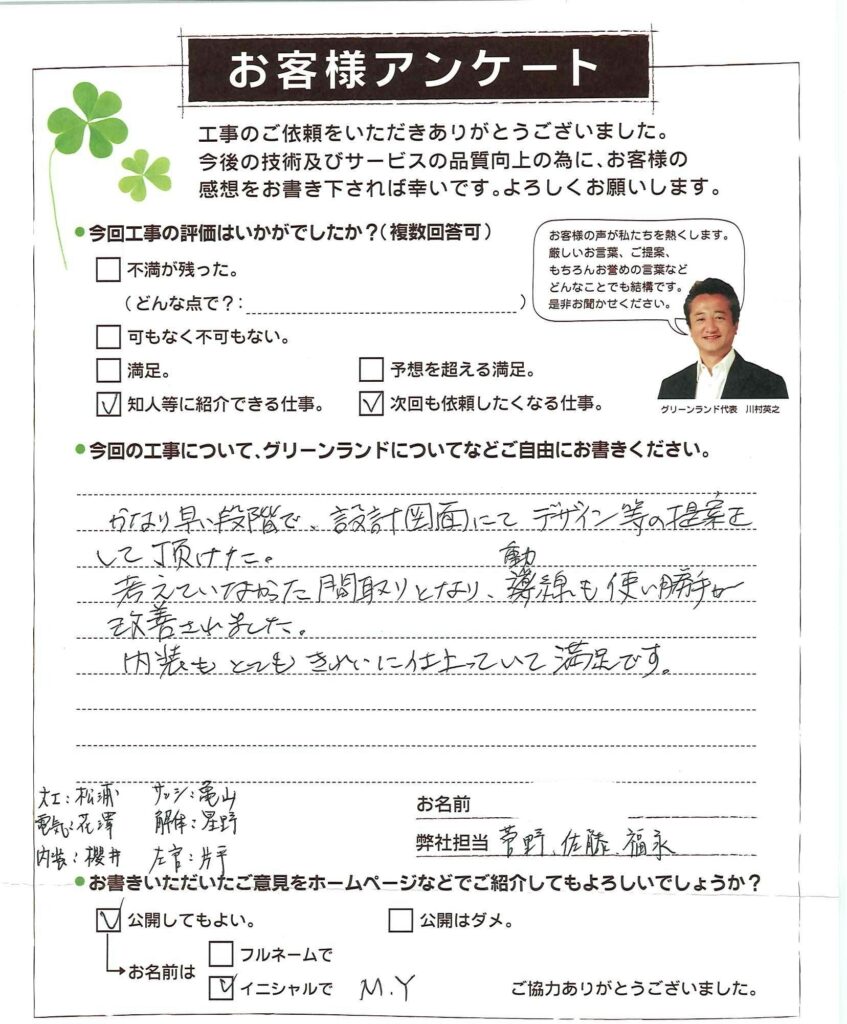 お客様アンケート
工事のご依頼をいただきありがとうございました。
今後の技術及びサービスの品質向上の為に、お客様の
感想をお書き下されば幸いです。よろしくお願いします。
今回工事の評価はいかがでしたか?(複数回答可)
不満が残った。
(どんな点で?: )
可もなく不可もない。
満足。
予想を超える満足。
知人等に紹介できる仕事。
次回も依頼したくなる仕事。
お客様の声が私たちを熱くします。
厳しいお言葉、ご提案、
もちろんお誉めの言葉など
どんなことでも結構です。
是非お聞かせください。
グリーンランド代表 川村英之
今回の工事について、グリーンランドについてなどご自由にお書きください。
かなり早い段階で、設計図面にて デザイン等の提案を
して頂けた。
考えていなかった間取りとなり、動線も使い勝手が
改善されました。
内装もとてもきれいに仕上っていて満足です。
大工:松浦 サッシ:亀山
電気:花澤 解体:星野
内装:櫻井 左官:片平
お名前
弊社担当 菅野、佐藤、福永
お書きいただいたご意見をホームページなどでご紹介してもよろしいでしょうか?
公開してもよい。
公開はダメ。
お名前は
フルネームで
イニシャルで M.Y
ご協力ありがとうございました。